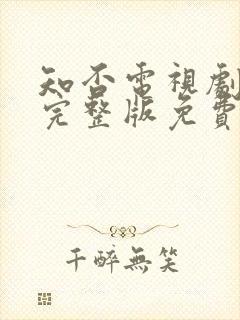 知否電視劇
完整版免費
千醉無笑